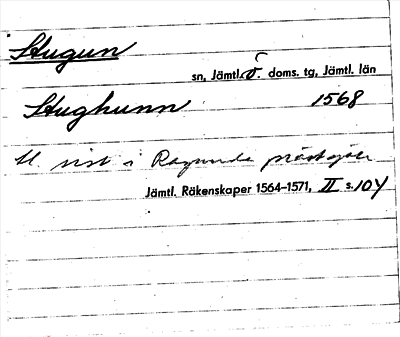 Stugun
sn, Jämtl. ö. doms. tg, Jämtl. län
Stughunn 1568
i Ragunda prästgäll
Jämtl. Räkenskaper 1564–1571, II s. 104